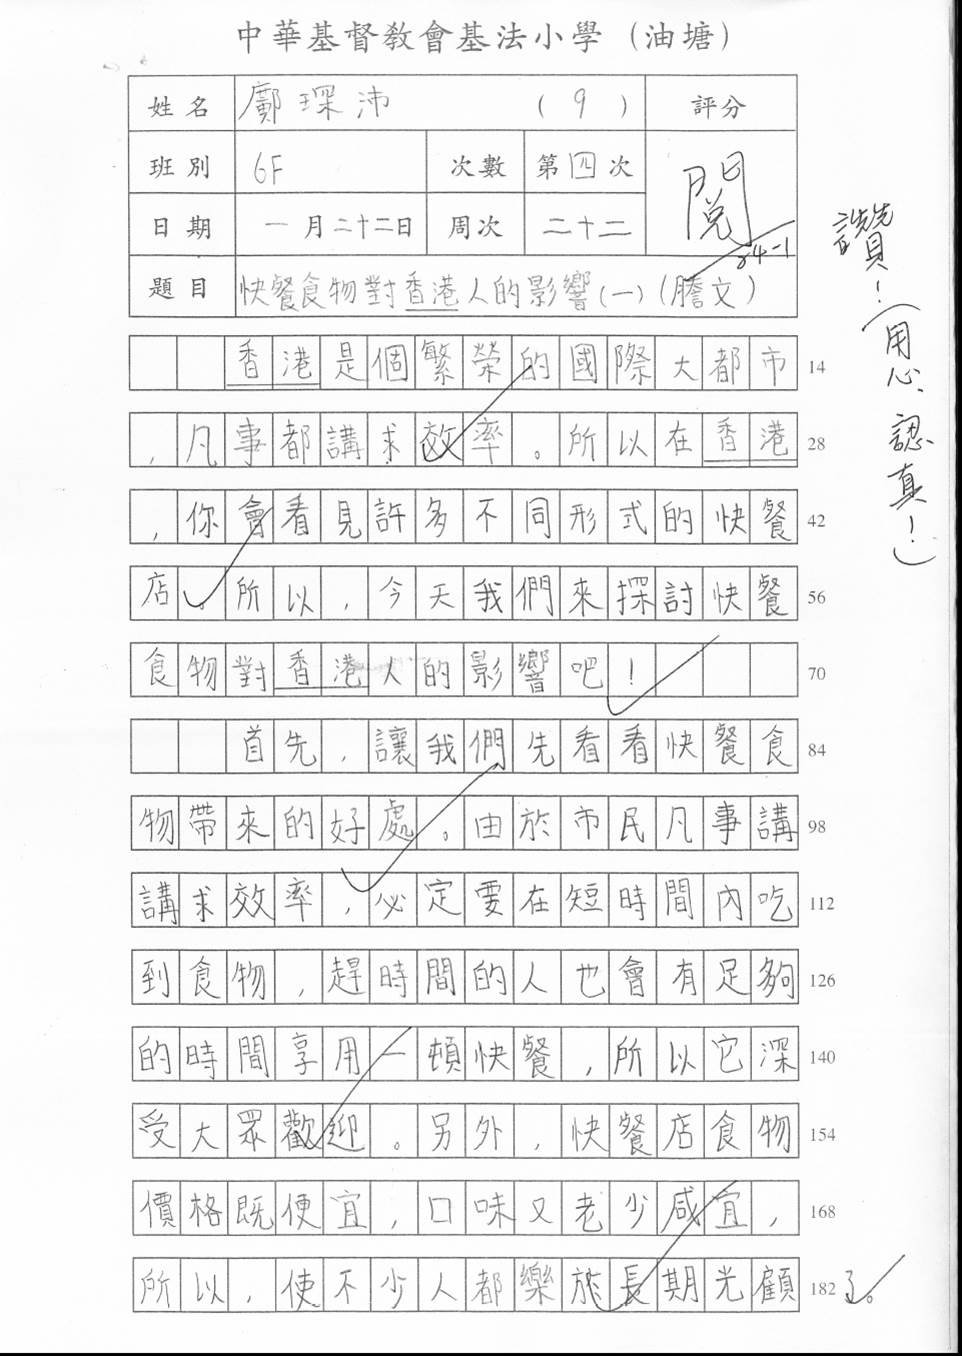 中華基督教會基法小學（油塘）
姓名 鄺琛沛 （ 9 ） 評分
班別 6F 次數 第四次 閱
日期 一月二十二日 周次 二十二 24-1
題目 快餐食物對香港人的影響(一)(謄文)
讚！(用心、認真！)
香港是個繁榮的國際大都市 14
，凡事都講求效率。所以在香港 28
，你會看見許多不同形式的快餐 42
店。所以，今天我們來探討快餐 56
食物對香港人的影響吧！ 70
首先，讓我們先看看快餐食 84
物帶來的好處。由於市民凡事講 98
講求效率，必定要在短時間內吃 112
到食物，趕時間的人也會有足夠 126
的時間享用一頓快餐，所以它深 140
受大眾歡迎。另外，快餐店食物 154
價格既便宜，口味又老少咸宜， 168
所以，使不少人都樂於長期光顧 182 了。